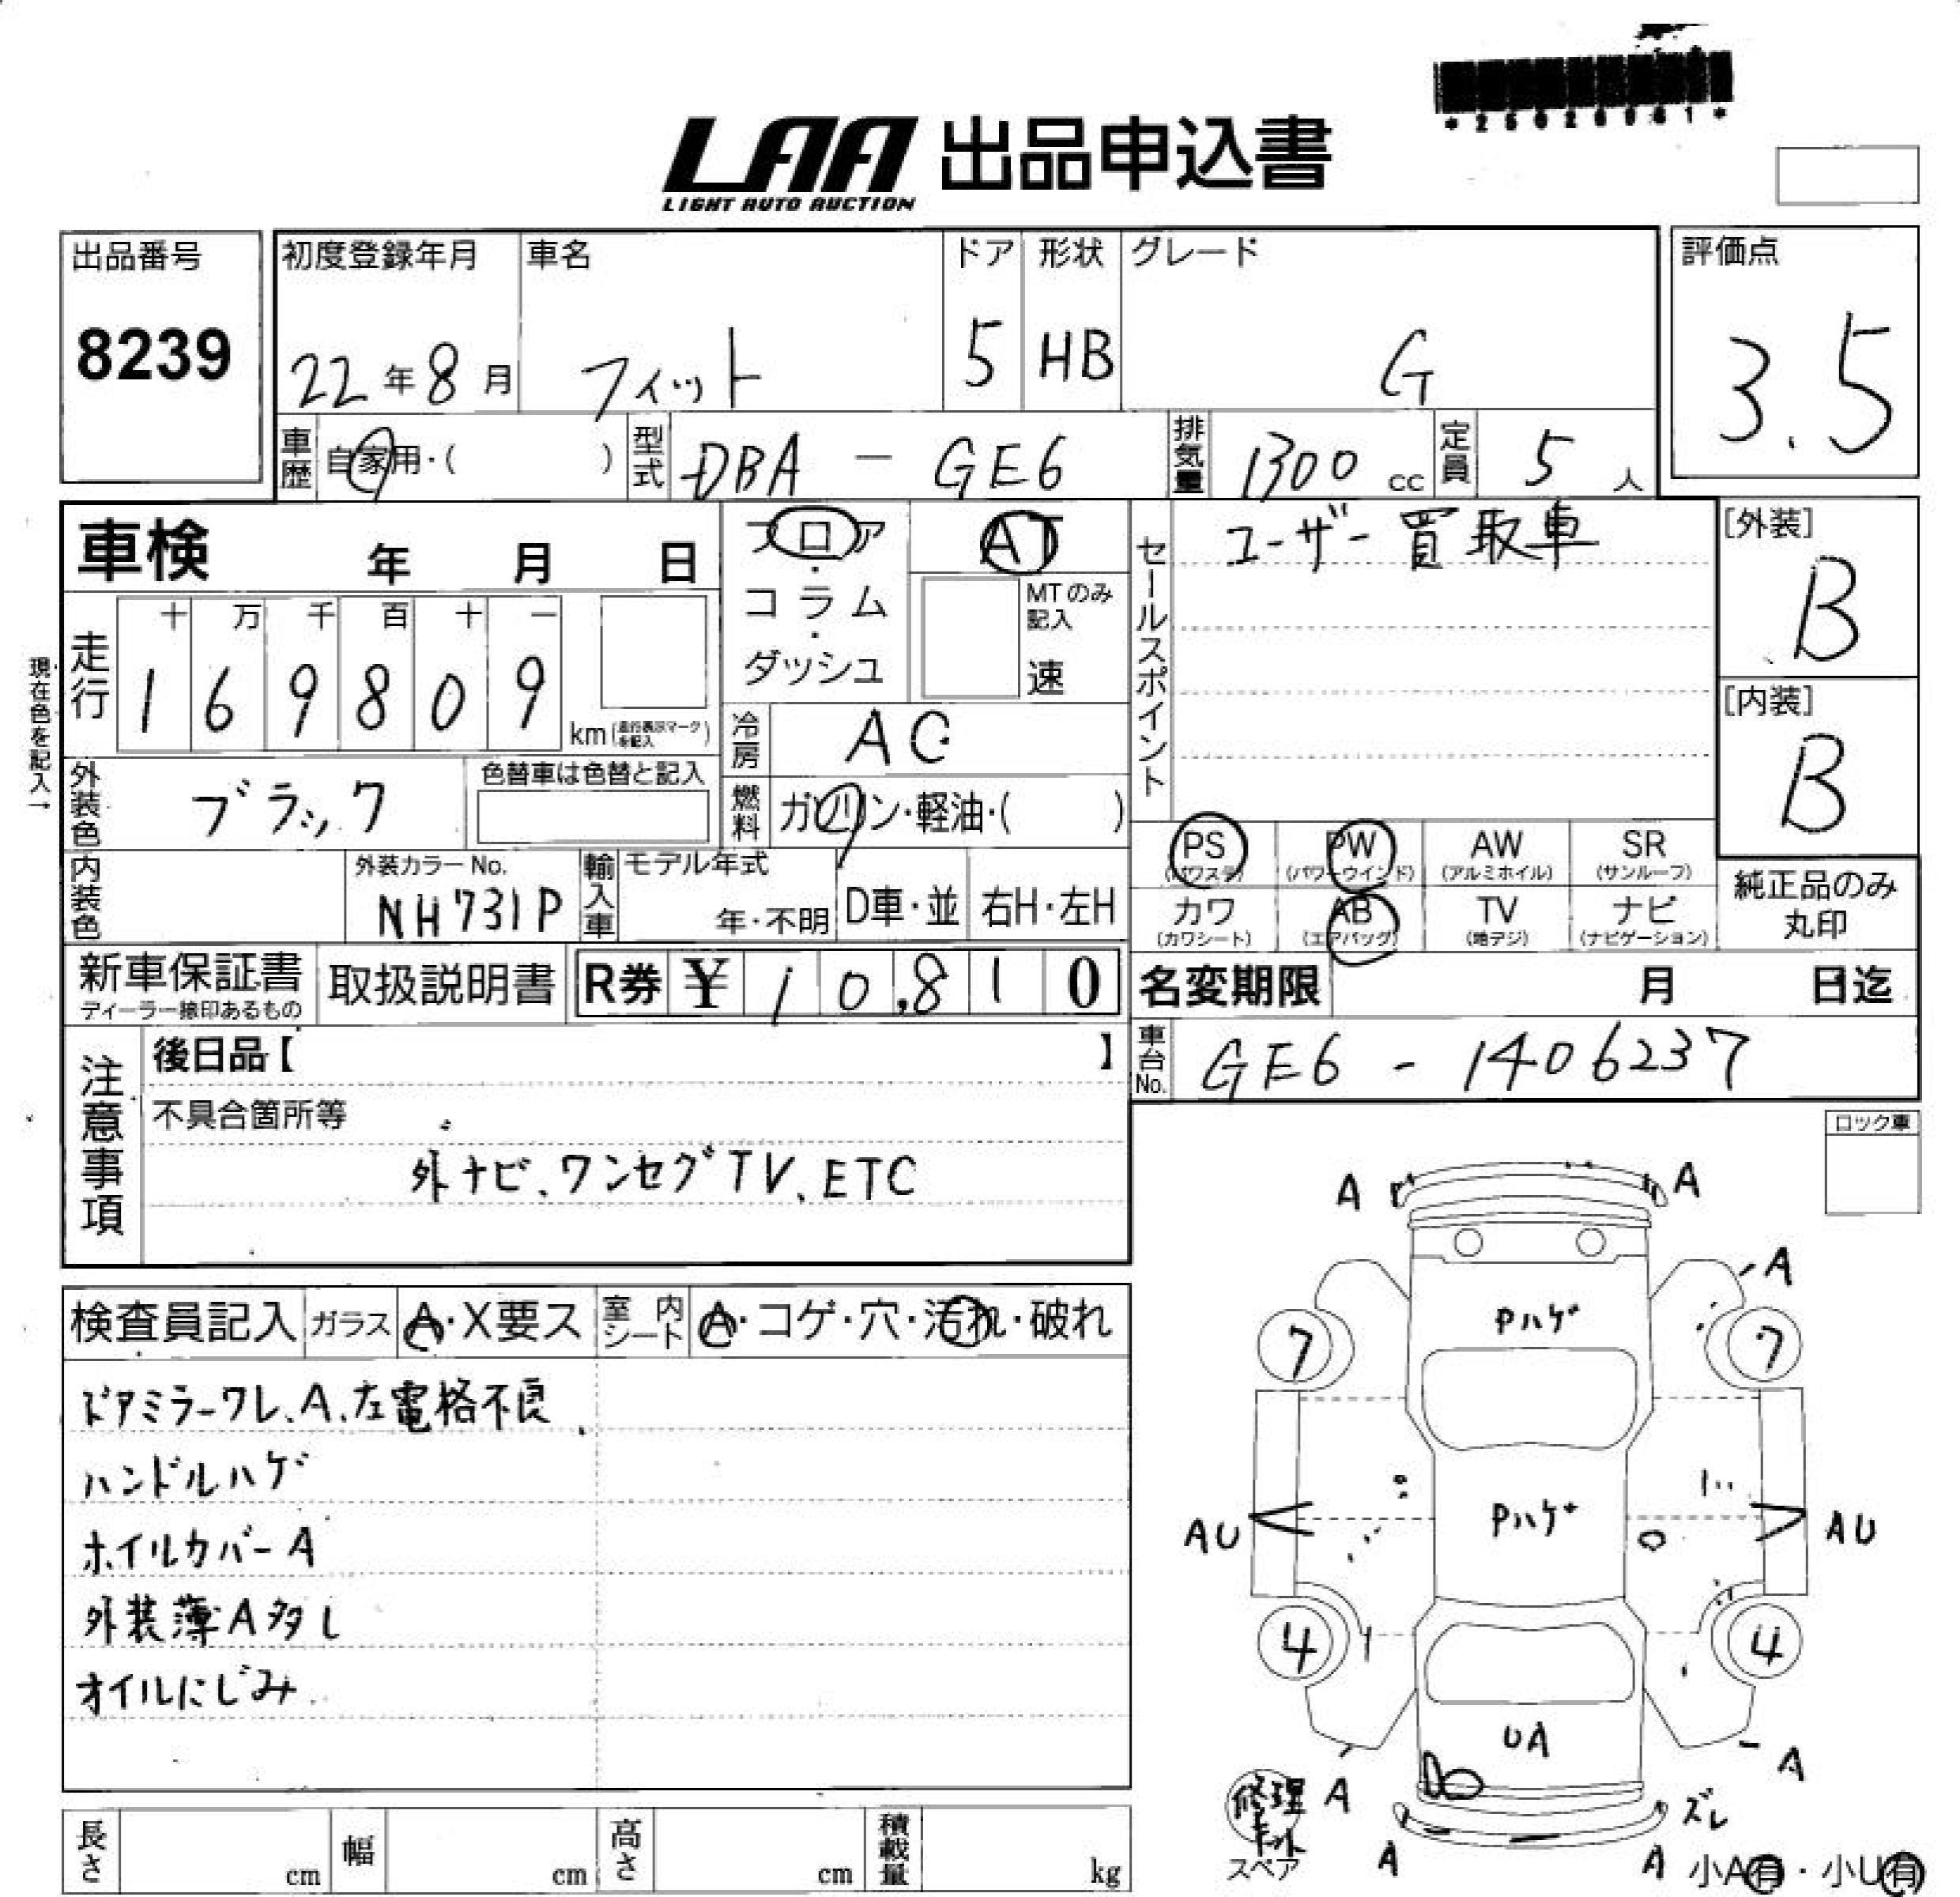 *25028061*
LAA 出品申込書
LIGHT AUTO AUCTION
出品番号 初度登録年月 車名 ドア 形状 グレード 評価点
8239 22年8月 フィット 5 HB G 3.5
車歴 自家用・( ) 型式 DBA - GE6 排気量 1300 cc 定員 5 人
車検 年 月 日 フロア AT セールスポイント ユーザー買取車 [外装]
・ B
コラム MTのみ記入
・
ダッシュ 速
現在色を記入→
走行 十 万 千 百 十 一
1 6 9 8 0 9 km(走行表示マークを記入) 冷房 AC [内装]
B
外装色 ブラック 色替車は色替と記入 燃料 ガソリン・軽油・( )
PS PW AW SR
(パワステ) (パワーウインド) (アルミホイル) (サンルーフ)
内装色 外装カラーNo. NH731P 輸入車 モデル年式 年・不明 D車・並 右H・左H
カワ AB TV ナビ 純正品のみ
(カワシート) (エアバッグ) (地デジ) (ナビゲーション) 丸印
新車保証書 取扱説明書 R券 ¥ 10,810 名変期限 月 日迄
ディーラー捺印あるもの
注意事項 後日品【 】 車台No. GE6 - 1406237
不具合箇所等 ロック車
外ナビ、ワンセグTV、ETC
検査員記入 ガラス A・X要ス 室内シート A・コゲ・穴・汚れ・破れ
ドアミラーワレ、A、左電格不良
ハンドルハゲ
ホイルカバーA
外装薄A多し
オイルにじみ
A A
A
Pハゲ
7 7
Pハゲ
AU AU
4 4
UA
A A
修理キット ズレ
スペア A A 小A有・小U有
長さ cm 幅 cm 高さ cm 積載量 kg